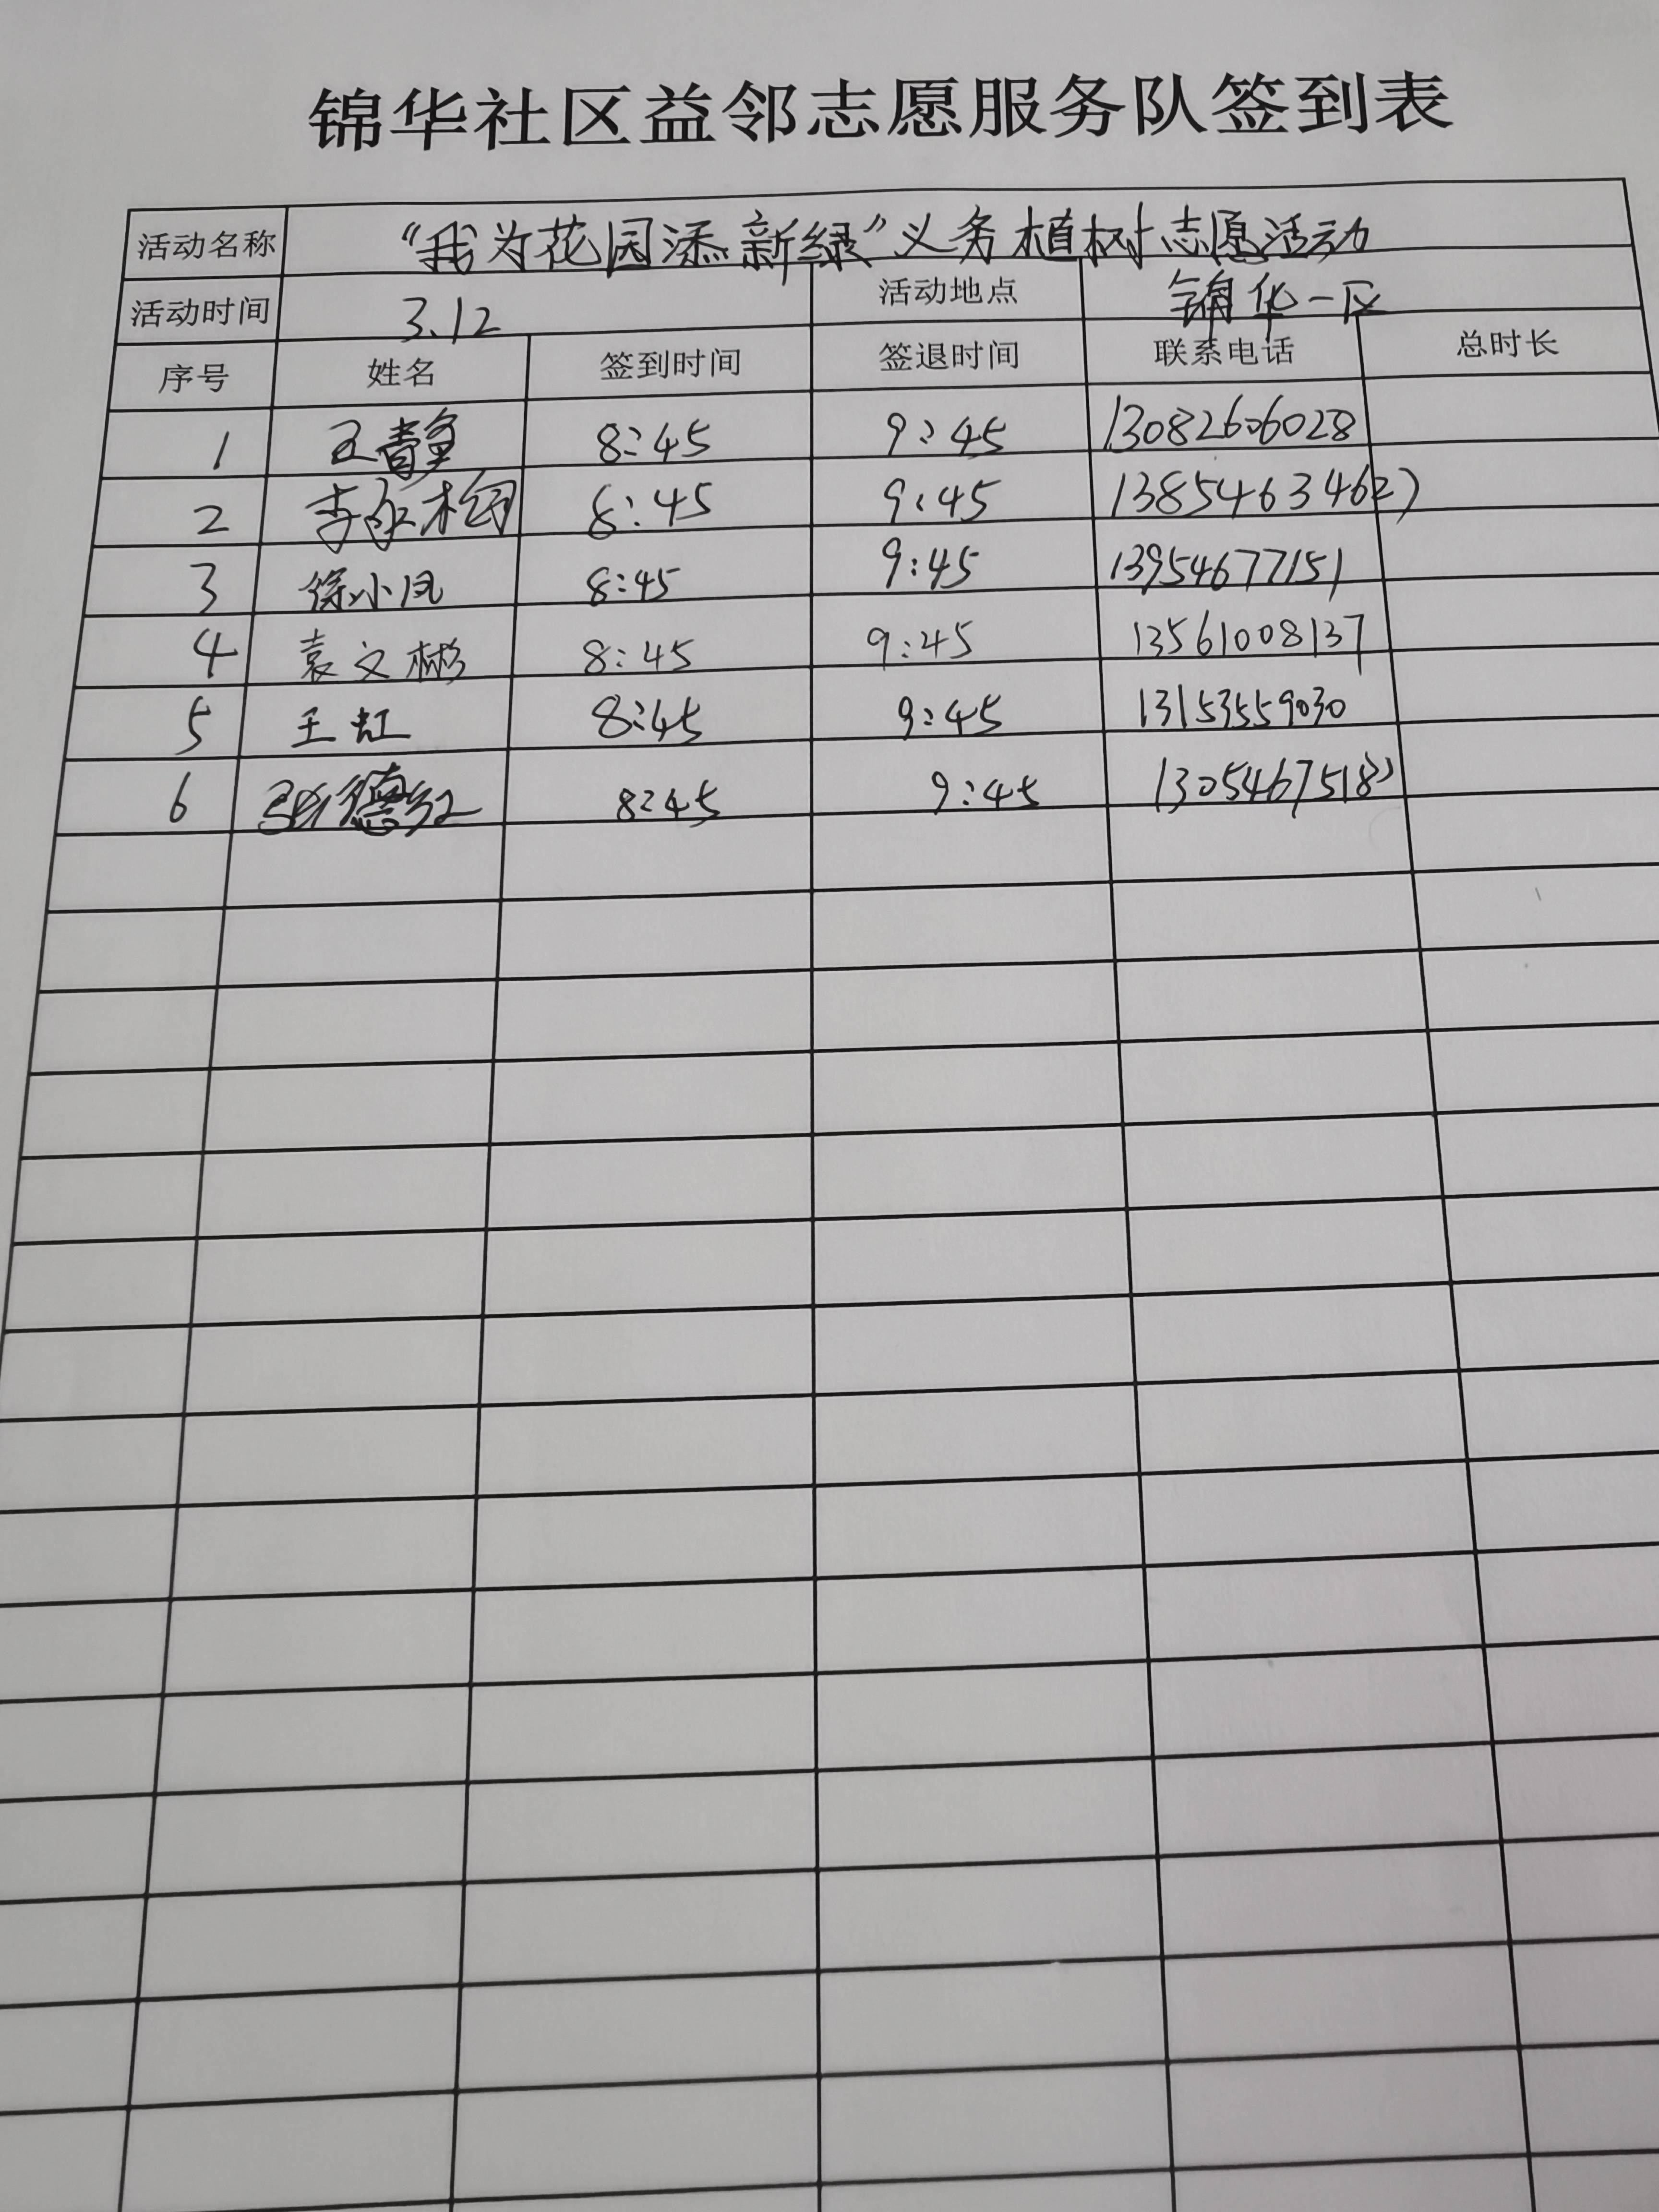 锦华社区益邻志愿服务队签到表
活动名称 “我为花园添新绿”义务植树志愿活动
活动时间 3.12 活动地点 锦华一区
序号 姓名 签到时间 签退时间 联系电话 总时长
1 王静 8:45 9:45 13082606028
2 李永桐 8:45 9:45
3 徐小凤 8:45 9:45 13954677151
4 袁文彬 8:45 9:45 13561008137
5 王虹 8:45 9:45 13153559030
6 德红 8:45 9:45